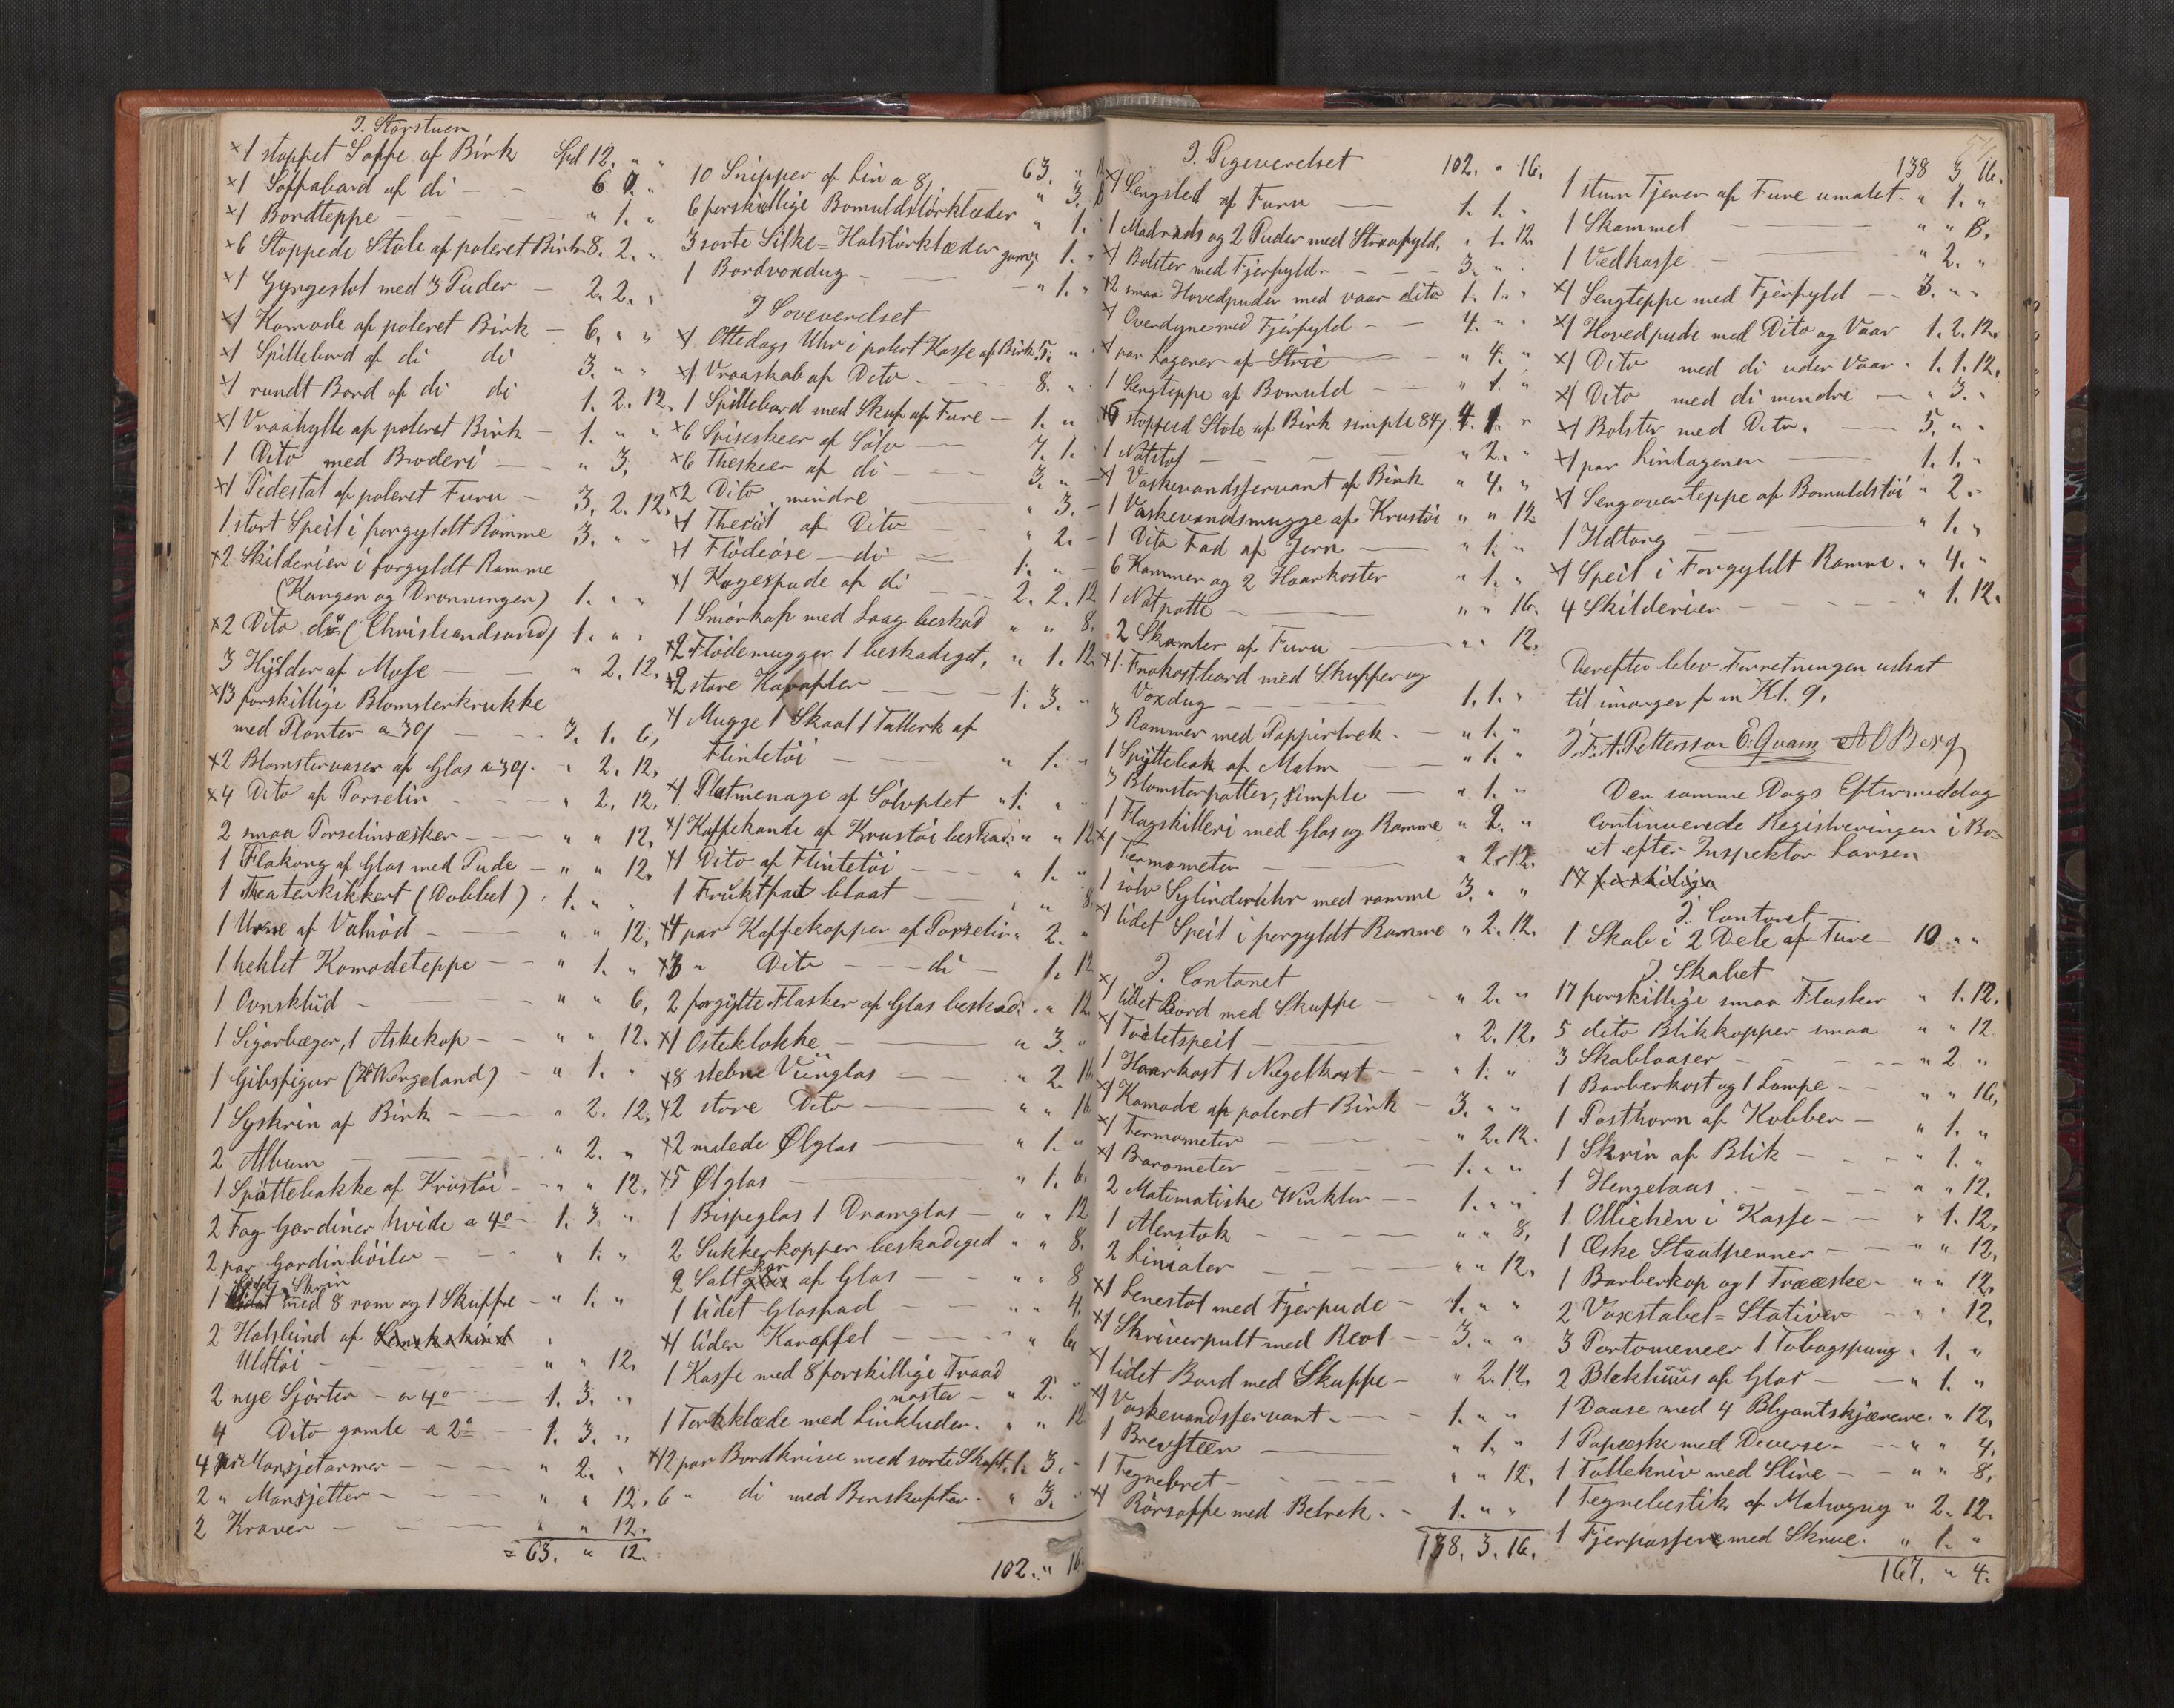 I. Storstuen
×1 stoppet Soffa af Birk Spd 12. " "
×1 Soffabord af di — 6 0. "
×1 Bordteppe — " 1. "
×6 Stoppede Stole af poleret Birk 8. 2. "
×1 Gyngestol med 3 Puder — 2. 2. "
×1 Komode af poleret Birk — 6. " "
×1 Spillebord af di di 3. " "
×1 rundt Bord af di di 1. 2. 12.
×1 Vraahylle af poleret Birk — 1. " "
1 Dito med Broderi — " 3.
×1 Pidestal af poleret Furu — 3. 2. 12.
1 stort Speil i forgyldt Ramme 3. " "
×2 Skilderier i forgyldt Ramme
(Kongen og Dronningen) 1. " "
×2 Dito do (Christiandsand) 1. " "
3 Hylder af Muse — " 2. 12.
×13 forskillige Blomsterkrukke
med Planter a 30/ — 3. 1. 6,
×2 Blomstervaser af Glas a 30/. " 2. 12.
×4 Dito af Porselin — " 2. 12.
2 smaa Porselinsæsker — " " 12.
1 Flakong af Glas med Pude — " " 12.
1 Theaterkikkert (Dobbel) " 1. "
1 Urne af Valnöd — " " 12,
1 heklet Komodeteppe — " 1. "
1 Ovnsklüd — " " 6,
1 Sigarbæger, 1 Askekop — " " 12.
1 Gibsfigur (H Wergeland) — " 1. "
1 Syskrin af Birk — " 2. 12,
2 Album — " 2. "
1 Spüttebakke af Krüstöi — " " 12.
2 Fag Gardiner hvide a 4o — 1. 3. "
2 par Gardinhölder — " 1. "
1 Skrin med 8 rom og 1 Skuffe — " 1. "
2 Halslind af
Uldtöi — " " 12.
2 nye Sjorter — a 4o — 1. 3. "
4 Dito gamle a 2o — 1. 3. "
4 pr Mansjetarmer — " 2. "
2 " Mansjetter — " " 12.
2 Kraver — " " 12.
= 63. " 12.
63. " 12
10 Snipper af Lin a 8/ " 3. 8
6 forskiellige Bomuldstörklæder " 1.
3 sorte Silke=Halstörklæder gamle 1. "
1 Bordvoxdug — " 1. "
I Soveverelset
×1 Ottedags Uhr i polert Kasse af Birk 5. " "
×1 Vraaskab af Dito — 8. "
1 Spillebord med Skuf af Fure — 1. "
×6 Spiseskeer af Sölv — 7. 1.
×6 Theskeer af di — 3. "
×2 Dito, mindre — " 3.
×1 Thesiil af Dito — " 2.
×1 Flödeöse — di — 1. "
×1 Kagespade af di — 2. 2. 12
1 Smörkop med Laag beskad " " 8.
×2 Flödemugger 1 beskadiget, " 1. 12
×2 store Karafler — 1. 3. "
×1 Mugge 1 Skaal 1 Tallerk af
Flintetöi — " 1. "
×1 Platmenage af Sölvplet " 1. "
×1 Kaffekande af Krustöi beskad: " " 12
×1 Dito af Flintetöi — " 1. "
1 Früktfad blaat — " " 8
×4 par Kaffekopper af Porselin " 2. "
×3 " Dito — di — 1. 12
2 forgyllte Flasker af Glas beskad: " " 12
×1 Osteklokke — " 3. "
×8 slebne Viinglas — " 2. 16
×2 store Dito — " " 16
×2 malede Ølglas — " 1. "
×5 Ølglas — " 1. 6.
1 Bispeglas 1 Dramglas — " " 12
2 Sukkerkopper beskadiged " " 8.
2 Saltkar af Glas — " " 8
1 lidet Glasfad — " " 4.
×1 liden Karaffel — " 6
1 Kasse med 8 forskillige Traad
nøster — " 2. "
1 Torkklæde med Linkluder. " " 12
×12 par Bordknive med sorte Skaft. 1. 3. "
6 " di med Benskafter. " 3. "
102. " 16.
I. Pigeverelset 102. " 16.
×1 Sengsted af Furu — 1. 1. "
1 Madrads og 2 Puder med Straafyld, " 1. 12.
×1 Bolster med Fjerfyld — 3. " "
×2 smaa Hovedpuder med vaar dito 1. 1. "
×1 Overdyne med Fjerfyld — 4. " "
×1 par Lagener af Strie — " 4. "
1 Sengteppe af Bomuld — " 1. "
×6 stopped Stole af Birk simple 84/. 4. 1. "
1 Natstol — " 2. "
×1 Vaskevandsservant af Birk " 4. "
1 Vaskevandsmugge af Krustöi " " 12
1 Dito Fad af Jern — " 1. "
6 Kammer og 2 Haarkoster " 1. "
1 Natpotte — " " 16.
2 Skamler af Furu — " " 12.
×1. Frokostbord med Skuffer og
Voxdug — 1. 1. "
3 Rammer med Pappirtrek. — " 1. "
1 Spyttebak af Malm — " 1. "
3 Blomsterpotter, simple — " 1. "
1 Flagskilleri med Glas og Ramme " 2. "
×1 Termometer — " 2. 12.
1 sölv Sylinderuhr med ramme 3. " "
×1 lidet Speil i forgyldt Ramme " 2. 12.
I. Contoret
×1 lidet Bord med Skuffe — " 2. "
×1 Toiletspeil — " 2. 12.
1 Haarkost 1 Negelkost — " 1. "
×1 Komode af poleret Birk — 3. " "
×1 Termometer — " 2. 12.
×1 Barometer — 1. " "
2 Matematiske Winkler — 1. " "
1 Alenstok — " " 8,
2 Linialer — " " 12.
×1 Lenestol med Fjerpude — 1. " "
×1 Skriverpult med Reol — 3. " "
×1 lidet Bord med Skuffe — " 2. 12.
×1 Vaskevandsservant. — 1. " "
1 Brevsteen — " 1. "
1 Tegnebret — " " 12.
×1 Rörsoffe med Betrek. — 1. " "
138. 3. 16.
138 3 16.
1 stum Tjener af Fure umalet. " 1. "
1 Skammel — " " 8.
1 Vedkasse — " 2. "
×1 Sengteppe med Fjerfyld — 3. " "
×1 Hovedpude med Dito og Vaar 1. 2. 12.
×1 Dito med di uden Vaar. 1. 1. 12.
×1 Dito med di mindre — " 3. "
×1 Bolster med Dito. — 5. " "
×1 par Linlagener — 1. 1. "
×1 Sengoverteppe af Bomuldstöi " 2. "
1 Ildtang — " 1. "
×1 Speil i Forgyldt Ramme. " 4. "
4 Skilderier — " 1. 12.
Derefter blev Forretningen udsat
til imorgen f m Kl. 9.
J. F. A. Pettersson E. Qvam A O Berg
Den samme Dags Eftermiddag
Continuerede Registreringen i Bo-
et efter Inspektør Larsen
17 forskillige
I. Contoret
1 Skab i 2 Dele af Fure — 10 " "
I. Skabet
17 forskillige smaa Flasker " 1. 12.
5 dito Blikkopper smaa " " 12
3 Skablaaser — " 2 "
1 Barberkost og 1 Lampe — " " 16,
1 Posthorn af Kobber — " 1. "
1 Skrin af Blik — " 1. "
1 Hengelaas — " " 12.
1 Olliekin i Kasse — " 1. 12,
1 Æske Staalpenner — " " 12,
1 Barberkop og 1 Trææske — " " 12.
2 Voxstabel=Stativer — " " 12,
3 Portomoneer 1 Tobagspung " 1. "
2 Blækhüüs af Glas — " 1. "
1 Daase med 4 Blyantskjærere. " 12,
1 Papeske med Diverse — " " 4.
1 Tollekniv med Slire — " " 8,
1 Tegnebestik af Mahogny " 2. 12.
1 Fjerpasser med Skrue. " 1. "
167. " 4.